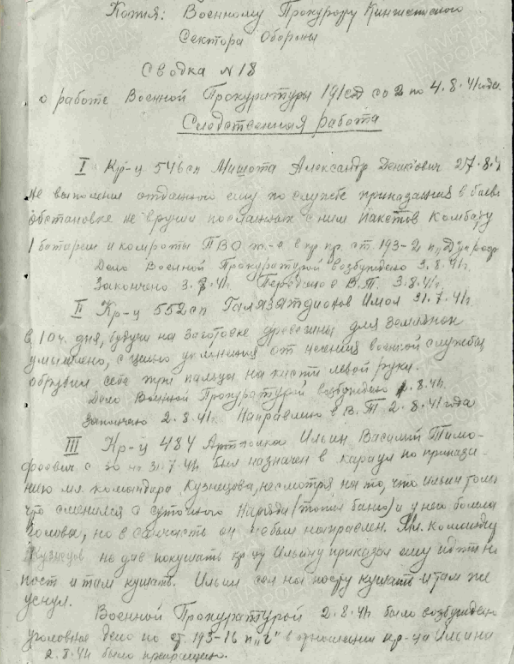 Копия: Военному Прокурору Кингисепского
Сектора Обороны
Сводка №18
о работе Военной Прокуратуры 191сд со 2 по 4.8.41 года.
Следственная работа
I Кр-ц 546сп Машота Александр 27.8.4
Не выполнил отданного ему по службе приказания в боевой
обстановке не вручил посланных с ним пакетов Комбату
1 батареи и комроты ПВО т.-е в пр. пр. ст. 193-2 п.
Дело Военной Прокуратурой возбуждено 3.8.41г.
Закончено 3.8.41 Передано в В.Т. 3.8.41г.
II Кр-ц 552сп 31.7.41г.
в 10 ч. дня, будучи на заготовке древесины для землянок
умышленно, с целью уклонения от несения военной службы
обрубил себе три пальца на кисти левой руки.
Дело Военной Прокуратурой возбуждено 8.41г.
Закончено 2.8.41г. Направлено в В.Т 2.8.41 года
III Кр-ц 484 Артполка Ильин Василий Тимо-
феевич с 30 на 31.7.41 был назначен в караул по приказа-
нию мл. командира Кузнецова, несмотря на то, что Ильин только
что сменился с суточного наряда (топил баню) и у него болела
голова, но в санчасть он не был направлен. Мл. Командир
Кузнецов не дав покушать кр-цу Ильину приказал ему идти на
пост и там кушать. Ильин сел на посту кушать и там же
уснул.
Военной Прокуратурой 2.8.41г было возбужден
уголовное дело по ст. 193-16 п "г" в отношении кр-ца Ильина
2.8.41 было прекращено.